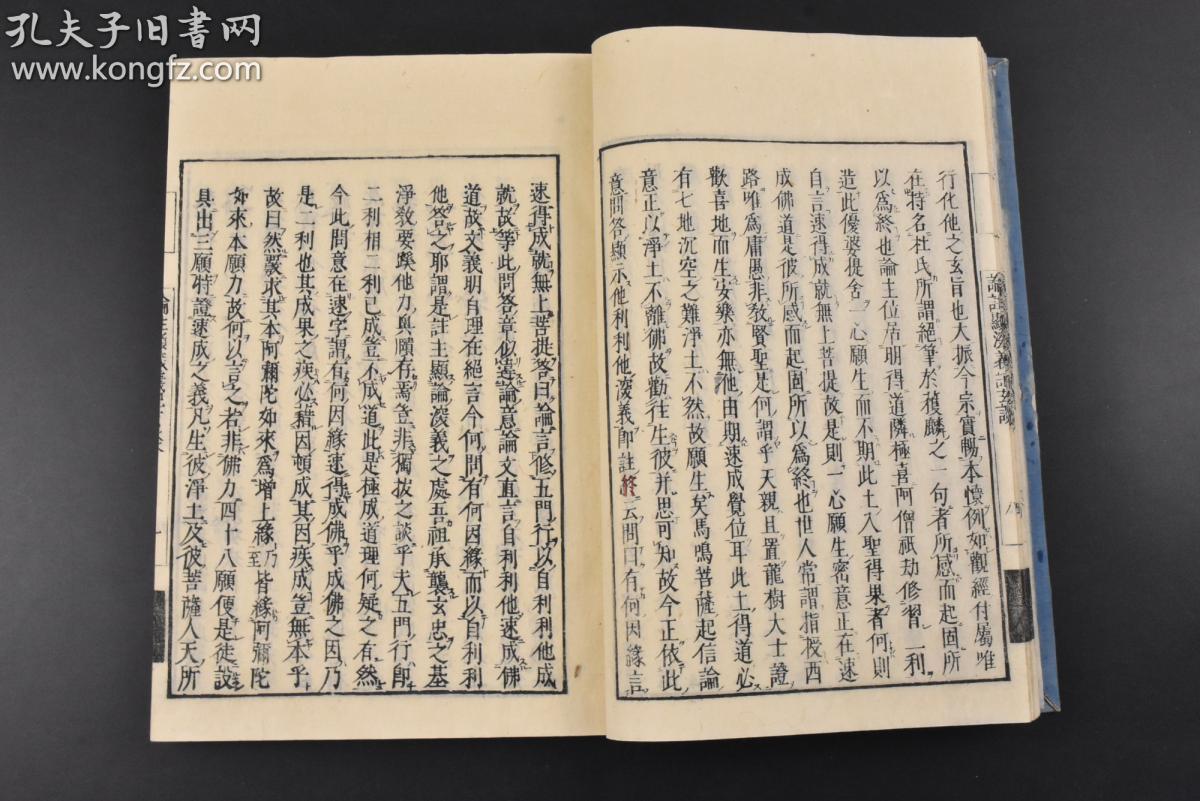 孔夫子旧书网
www.kongfz.com
行化他之玄旨也大振今宗實暢本懷例如觀經付屬唯
在特名杜氏所謂絕筆於獲麟之一句者所感而起固所
以爲終也論土位吊朋得道隣極喜阿僧祇劫修習一利
造此優婆提舍一心願生而不期此土入聖得果者何則
自言速得成就無上菩提故是則一心願生密意正在速
成佛道是彼所感而起固所以爲終也世人常謂指授西
路唯爲庸愚非敎賢聖是何謂乎天親且置龍樹大士證
歡喜地而生安樂亦無他由期速成覺位耳此土得道必
有七地沉空之難淨土不然故願生矣馬鳴菩薩起信論
意正以淨土不離佛故勸往生彼并思可知故今正依此
意問答顯示他利利他深義即註終云問曰有何因緣言
速得成就無上菩提答曰論言修五門行以自利利他成
就故等此問答章似違論意論文直言自利利他速成佛
道故文義明自理在絕言今何問有何因緣而以自利利
他答之耶謂是註主顯論深義之處吾祖承襲玄忠之基
淨敎要蹊他力與願存焉豈非獨拔之談乎夫五門行即
二利相二利已成豈不成道此是極成道理何疑之有然
今此問意在速字謂有何因緣速得成佛乎成佛之因乃
是二利也其成果之疾必藉因頓成其因疾成豈無本乎
故曰然覈求其本阿彌陀如來爲增上緣乃至皆緣阿彌陀
如來本願力故何以言之若非佛力四十八願便是徒設
具出三願特證速成之義凡生彼淨土及彼菩薩人天所